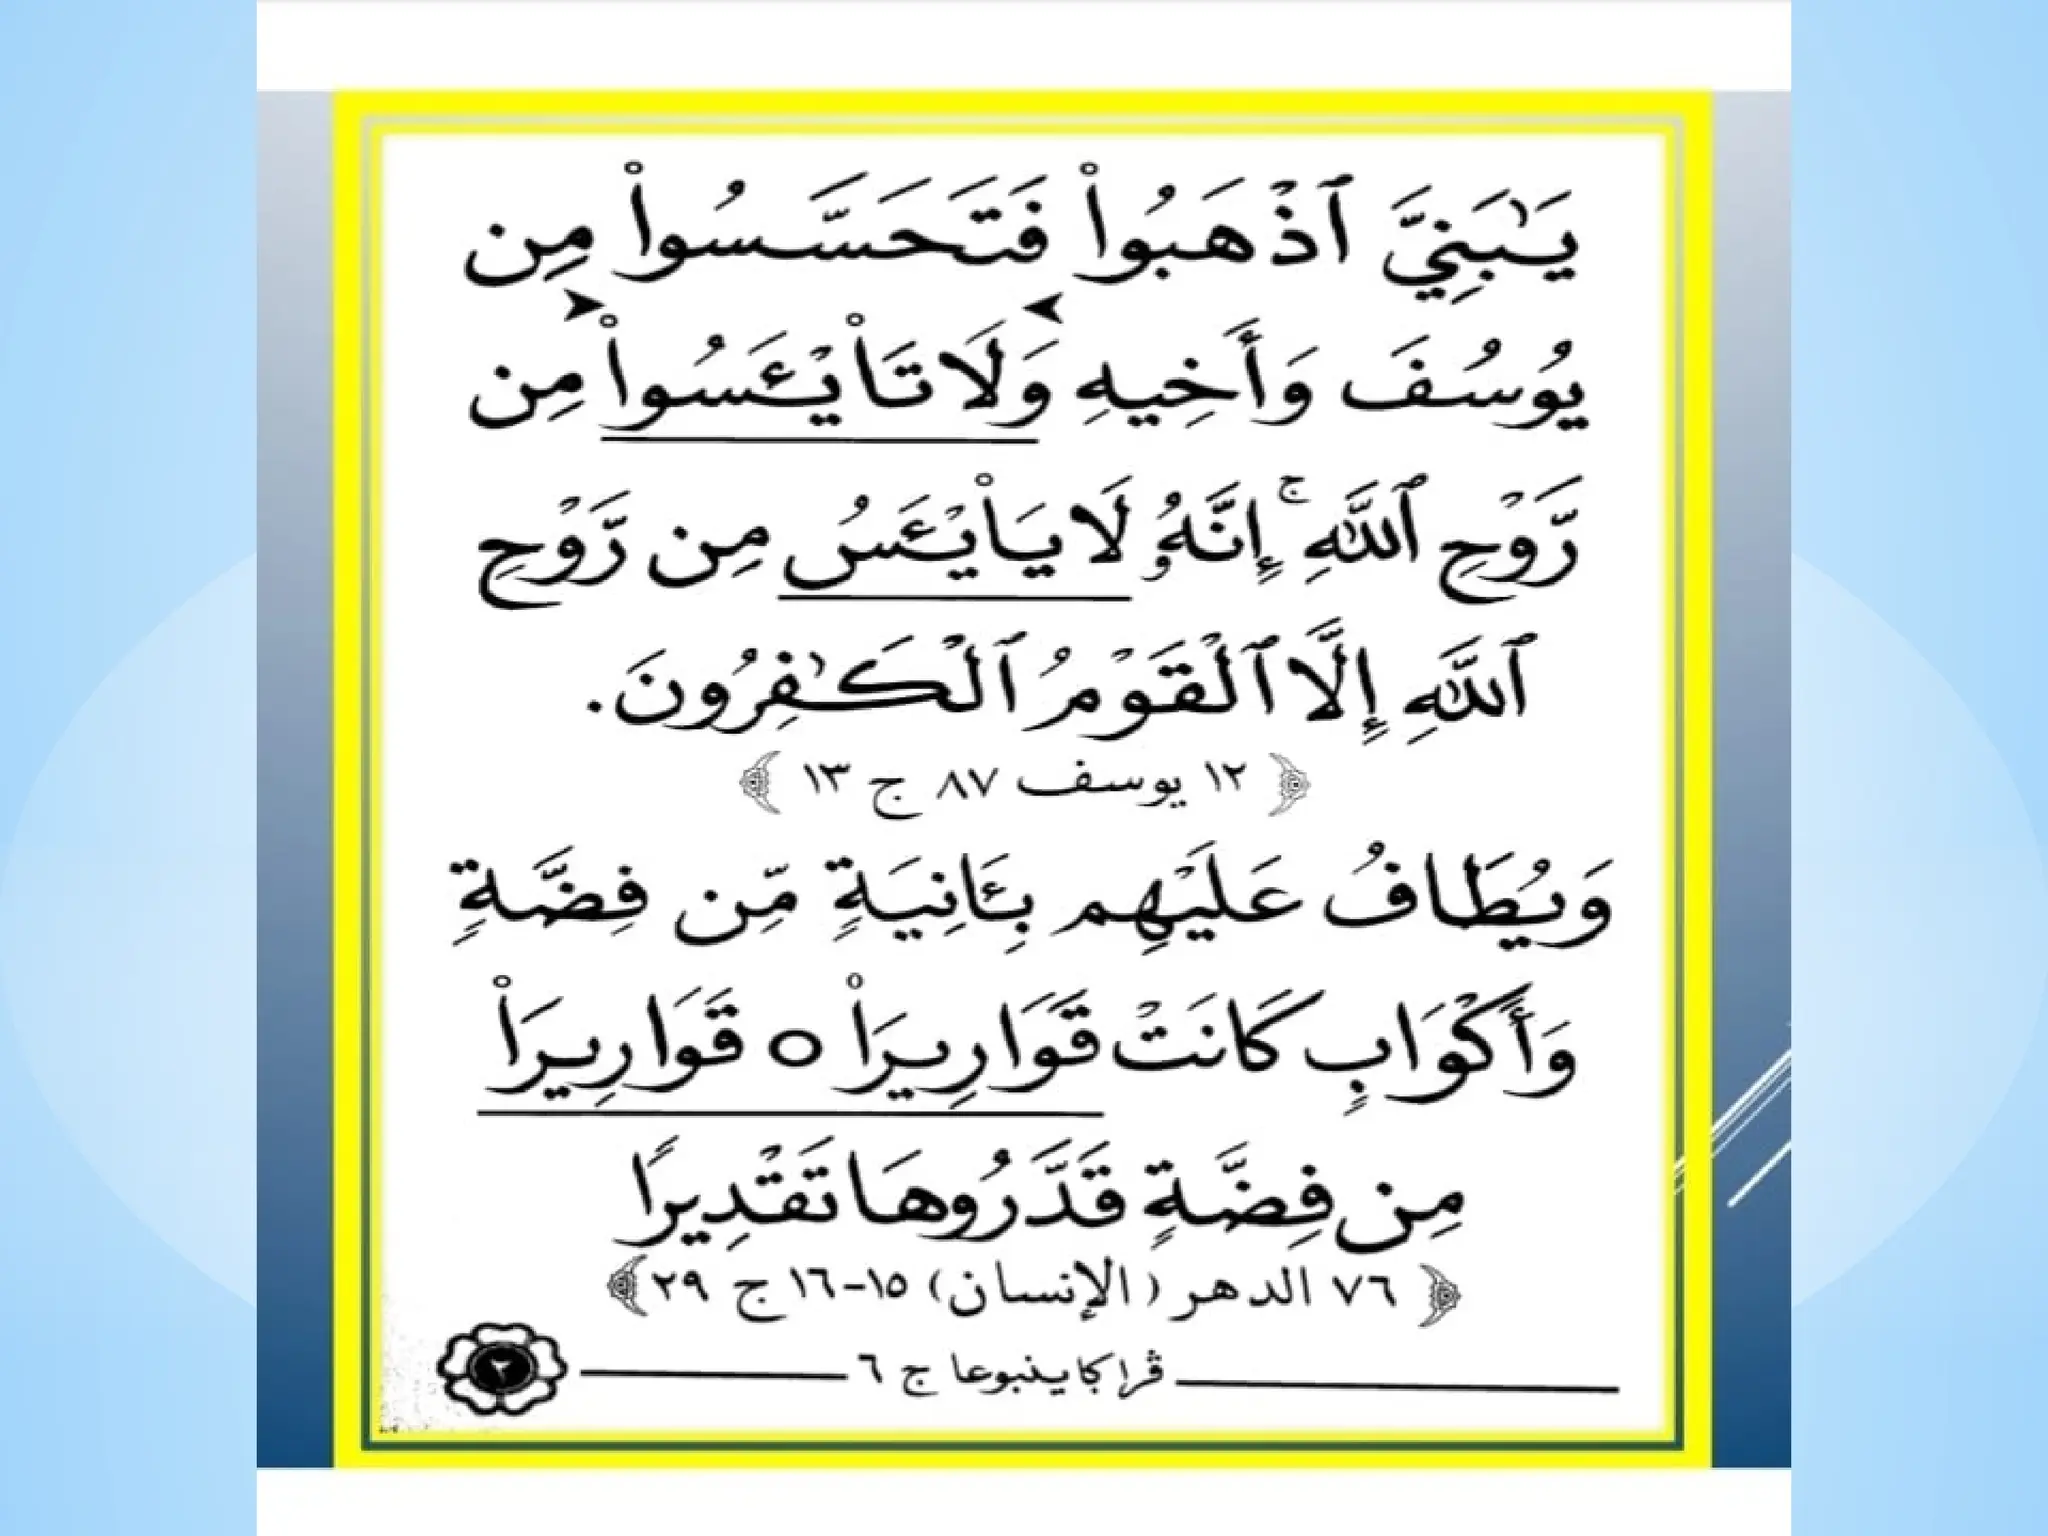 يَـٰبَنِيَّ ٱذْهَبُوا۟ فَتَحَسَّسُوا۟ مِن
يُوسُفَ وَأَخِيهِ وَلَا تَا۟يْـَٔسُوا۟ مِن
رَّوْحِ ٱللَّهِ ۚ إِنَّهُۥ لَا يَا۟يْـَٔسُ مِن رَّوْحِ
ٱللَّهِ إِلَّا ٱلْقَوْمُ ٱلْكَـٰفِرُونَ.
﴿ ١٢ يوسف ٨٧ ج ١٣ ﴾
وَيُطَافُ عَلَيْهِم بِـَٔانِيَةٍ مِّن فِضَّةٍ
وَأَكْوَابٍ كَانَتْ قَوَارِيرَا۟ ○ قَوَارِيرَا۟
مِن فِضَّةٍ قَدَّرُوهَا تَقْدِيرًا
﴿ ٧٦ الدهر (الإنسان) ١٥-١٦ ج ٢٩ ﴾
ڤراكاينبوعا ج ٦
٢